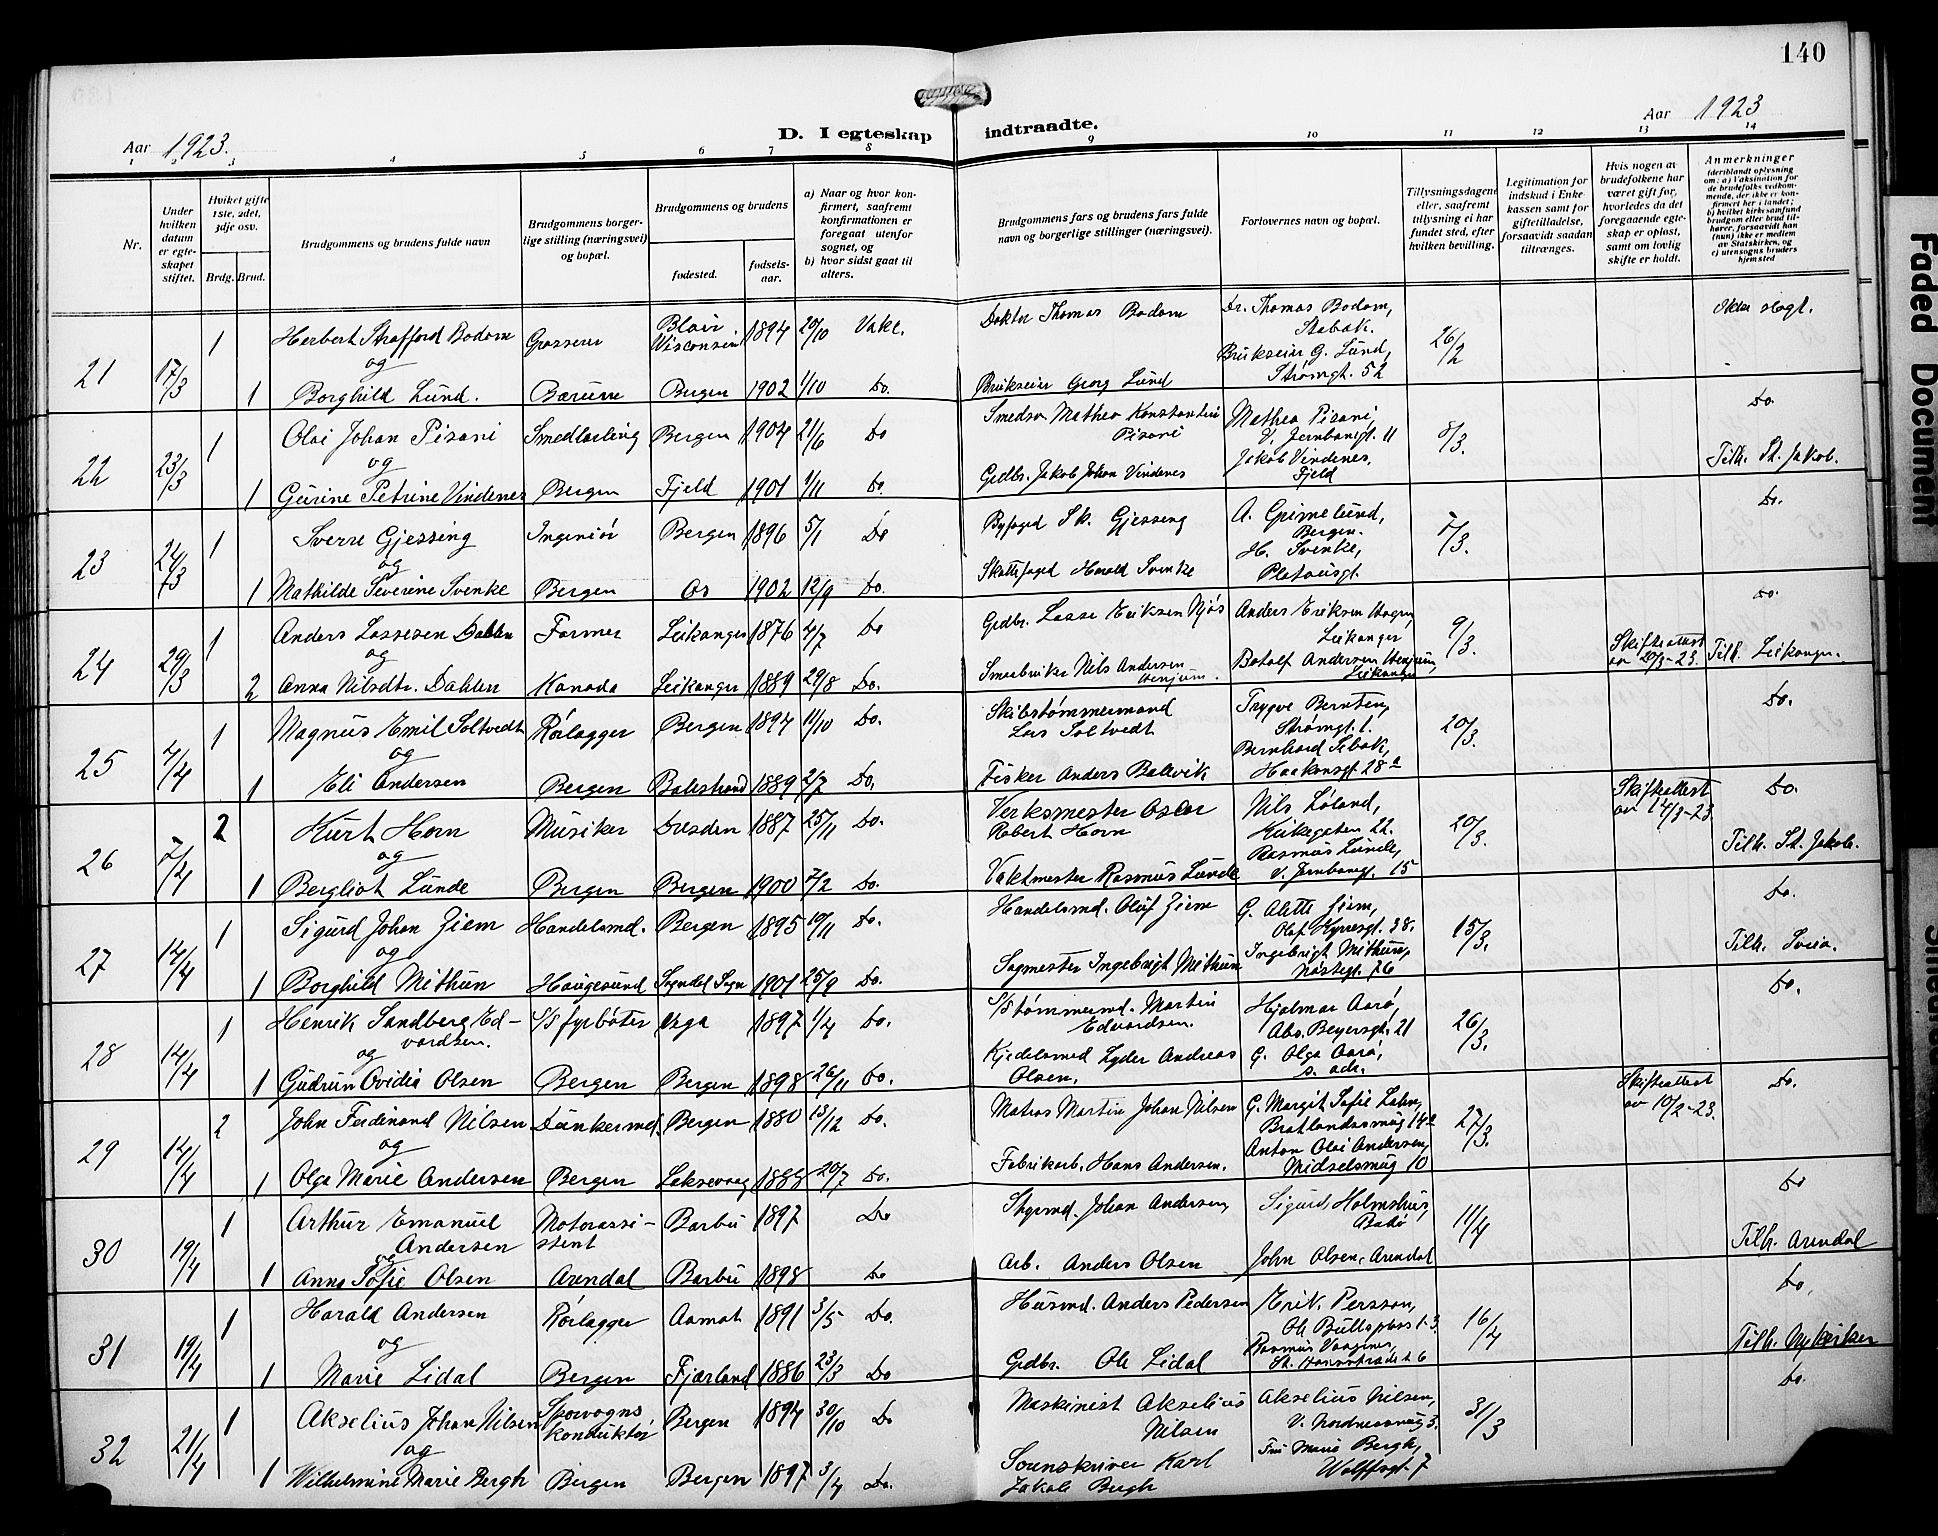 140
Aar 1923.
D. I egteskap indtraadte.
Aar 1923
1 2 3 4 5 6 7 8 9 10 11 12 13 14
Nr.
Under hvilken datum er egteskapet stiftet.
Hvilket gifte 1ste, 2det, 3dje osv.
Brdg. Brud.
Brudgommens og brudens fulde navn
Brudgommens borgerlige stilling (næringsvei) og bopæl.
Brudgommens og brudens
fødested.
fødselsaar.
a) Naar og hvor konfirmert, saafremt konfirmationen er foregaat utenfor sognet, og
b) hvor sidst gaat til alters.
Brudgommens fars og brudens fars fulde navn og borgerlige stillinger (næringsvei).
Forlovernes navn og bopæl.
Tillysningsdagene eller, saafremt tillysning ei har fundet sted, efter hvilken bevilling.
Legitimation for indskud i Enkekassen samt for giftetilladelse, forsaavidt saadan tiltrænges.
Hvis nogen av brudefolkene har været gift før, hvorledes da det foregaaende egteskap er opløst, samt om lovlig skifte er holdt.
Anmerkninger (deriblandt oplysning om: a) Vaksination for de brudefolks vedkommende, der ikke er konfirmert her i landet; b) hvilket kirkesamfund brudgom eller brud tilhører, forsaavidt han (hun) ikke er medlem av Statskirken, og c) utensogns bruders hjemsted
21 17/3 1 Herbert Strafford Bodom Grosserer Blair Wisconsin 1894 20/10 Vakc. Doktor Thomas Bodom Dr. Thomas Bodom, Stabæk. 26/2 Ikke slegt.
og Brukseier G. Lund, Strømgt. 52
1 Borghild Lund. Bærum Bergen 1902 1/10 Do. Brukseier Georg Lund
22 23/3 1 Olai Johan Pisani Smedlærling Bergen 1904 21/6 Do Smedsv. Matheo Konstantin Pisani Matheo Pisani, V. Jernbanegt. 11 8/3. Do.
og Jakob Vindenes, Fjeld
1 Gurine Petrine Vindenes Bergen Fjeld 1901 1/11 Do. Grdbr. Jakob Johan Vindenes Tilh. St. Jakob.
23 24/3 1 Sverre Gjessing Ingeniør Bergen 1896 5/1 Do Byfoged Sk. Gjessing A. Grimelund, Bergen. 7/3. Do.
og H. Svenke, Platousgt.
1 Mathilde Severine Svenke Bergen Os 1902 12/9 Do. Skattefoged Harald Svenke
24 29/3 1 Anders Lassesen Dahlen Farmer Leikanger 1876 4/7 Do Grdbr. Lasse Eriksen Njøs Anders Eriksen Hagen, Leikanger 9/3. Do.
og Botolf Andersen Henjum, Leikanger Skifteattest av 20/3-23. Tilh. Leikanger.
2 Anna Nilsdtr. Dahlen Kanada Leikanger 1889 29/8 Do. Smaabruker Nils Andersen Henjum.
25 7/4 1 Magnus Emil Soltvedt Rørlægger Bergen 1894 11/10 Do. Skibstømmermand Lars Soltvedt Trygve Berntsen, Strømgt. 1. 20/3. Do.
og Bernhard Sebak, Haakonsgt. 28a
1 Eli Andersen Bergen Balestrand 1889 2/7 Do. Fisker Anders Balevik
26 7/4 2 Kurt Horn Musiker Dresden 1887 25/11 Do. Verksmester Oscar Robert Horn Nils Løland, Kirkegaten 22. 20/3. Skifteattest av 14/3-23. Do.
og Rasmus Lunde, V. Jernbanegt. 15
1 Bergliot Lunde Bergen Bergen 1900 7/2 Do. Vaktmester Rasmus Lunde Tilh. St. Jakob.
27 14/4 1 Sigurd Johan Ziem Handelsmd. Bergen 1895 19/11 Do. Handelsmd. Oluf Ziem G. Alette Ziem, Olaf Kyrresgt. 38. 15/3. Do.
og Ingebrigt Mithun, Nøstegt. 76
1 Borghild Mithun Haugesund Sogndal Sogn 1901 25/9 Do. Sagmester Ingebrigt Mithun Tilh. Svein.
28 14/4 1 Henrik Sandberg Edvardsen. S/S fyrbøter Vega 1897 1/4 Do. S/S tømmermd. Martin Edvardsen. Hjalmar Aarø, Abs. Beyersgt. 21 26/3. Do.
og G. Olga Aarø, s. adr.
1 Gudrun Ovidia Olsen Bergen Bergen 1898 26/11 Do. Kjedelsmed Lyder Andreas Olsen.
29 14/4 2 John Ferdinand Nilsen Dunkermd. Bergen 1880 13/12 Do. Matros Martin Johan Nilsen G. Margit Sofie Lahn, Bratlandssmug 14a 27/3. Skifteattest av 10/2-23. Do.
og Anton Olai Andersen, Midselsmug 10
1 Olga Marie Andersen Bergen Laksevaag 1885 20/7 Do. Fabrikarb. Hans Andersen.
30 19/4 1 Arthur Emanuel Andersen Motorassistent Barbu 1897 Do Styrmd. Johan Andersen, Sigurd Holmshus, 11/4 Do
og
1 Anna Sofie Olsen Arendal Barbu 1898 Do Arb. Anders Olsen John Olsen, Arendal Tilh. Arendal
31 19/4 1 Harald Andersen Rørlægger Aamot 1891 3/5 Do. Husmd. Anders Pedersen Erik Persson, Ole Bullsplass 1-3. 16/4 Do.
og Rasmus Vaagenes,
1 Marie Lidal Bergen Fjærland 1886 23/3 Do Grdbr. Ole Lidal Tilh. Nykirken
32 21/4 1 Akselius Johan Nilsen Sporvogns konduktør Bergen 1894 30/10 Do Maskinist Akselius Nilsen Akselius Nilsen, V. Nordnessmug 3. 31/3 Do.
og Fru Marie Bergh, Wolffsgt. 7
1 Wilhelmine Marie Bergh Bergen Bergen 1897 3/4 Do. Sorenskriver Karl Jakob Bergh
Faded Document